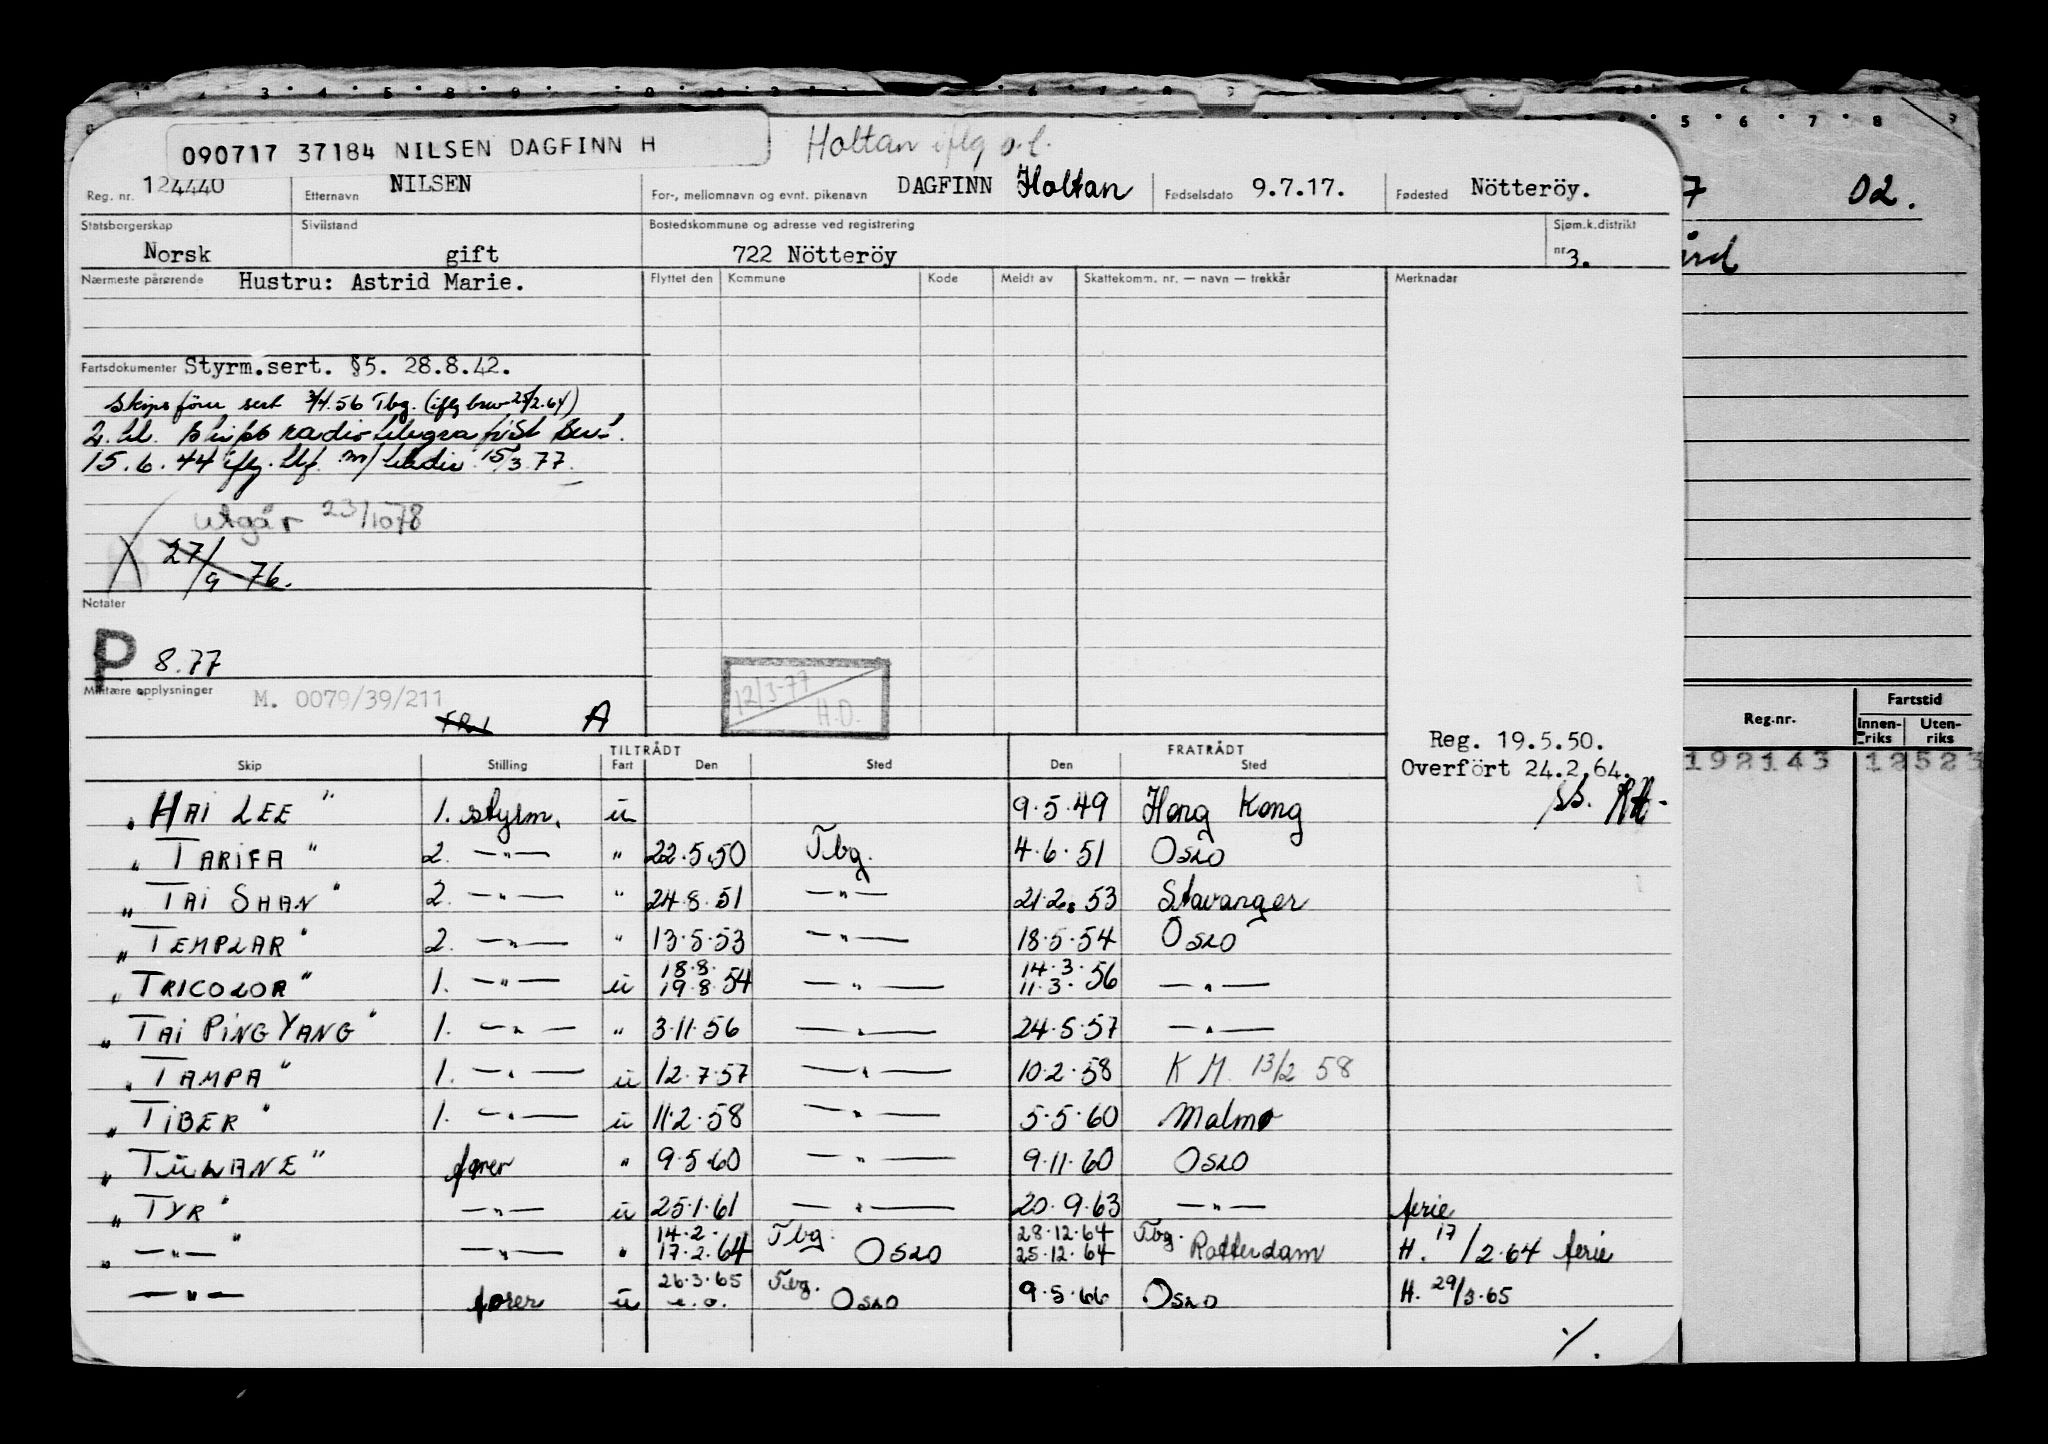 Holtan iflg
090717 37184 NILSEN DAGFINN H
Reg. nr. 124440 Etternavn NILSEN For-, mellomnavn og evnt. pikenavn DAGFINN Holtan Fødselsdato 9.7.17. Fødested Nötteröy.
Statsborgerskap Sivilstand Bostedskommune og adresse ved registrering Sjøm.k.distrikt
Norsk gift 722 Nötteröy nr 3.
Nærmeste pårørende Hustru: Astrid Marie. Flyttet den Kommune Kode Meldt av Skattekomm. nr. — navn — trekkår Merknader
Fartsdokumenter Styrm.sert. §5. 28.8.42.
Skipsförer sert 3/4.56 Tbg. (iflg brev 25/2.64)
2. kl. skips radiotelegrafist
15.6.44 iflg. tlf. m/ 15/3.77.
Utgår 23/10 78
27/9-76.
Notater
P 8.77
Militære opplysninger M. 0079/39/211
A
12/3-77
H.O.
Reg. 19.5.50.
Overfört 24.2.64.
TILTRÅDT FRATRÅDT
Skip Stilling Fart Den Sted Den Sted
"HAI LEE" 1. styrm. u 9.5.49 Hong Kong
"TARIFA" 2. —"— " 22.5.50 Tbg. 4.6.51 OSLO
"TAI SHAN" 2. —"— " 24.8.51 —"— 21.2.53 Stavanger
"TEMPLAR" 2. —"— " 13.5.53 —"— 18.5.54 OSLO
"TRICOLOR" 1. —"— u 18.8. 19.8.54 —"— 14.3. 11.3.56 —"—
"TAI PING YANG" 1. —"— " 3.11.56 —"— 24.5.57 —"—
"TAMPA" 1. —"— u 12.7.57 —"— 10.2.58 K M. 13/2 58
"TIBER" 1. —"— u 11.2.58 —"— 5.5.60 Malmø
"TULANE" fører " 9.5.60 —"— 9.11.60 OSLO
"TYR" —"— u 25.1.61 —"— 20.9.63 —"— ferie
—"— " —"— " 14.2. 17.2.64 Tbg. OSLO 28.12.64 25.12.64 Tbg. Rotterdam H. 17/2.64 ferie
—"— fører u 26.3.65 Tbg. OSLO 9.5.66 OSLO H. 29/3.65
02.
Reg.nr. Fartstid
Innenriks Utenriks
192143 12523